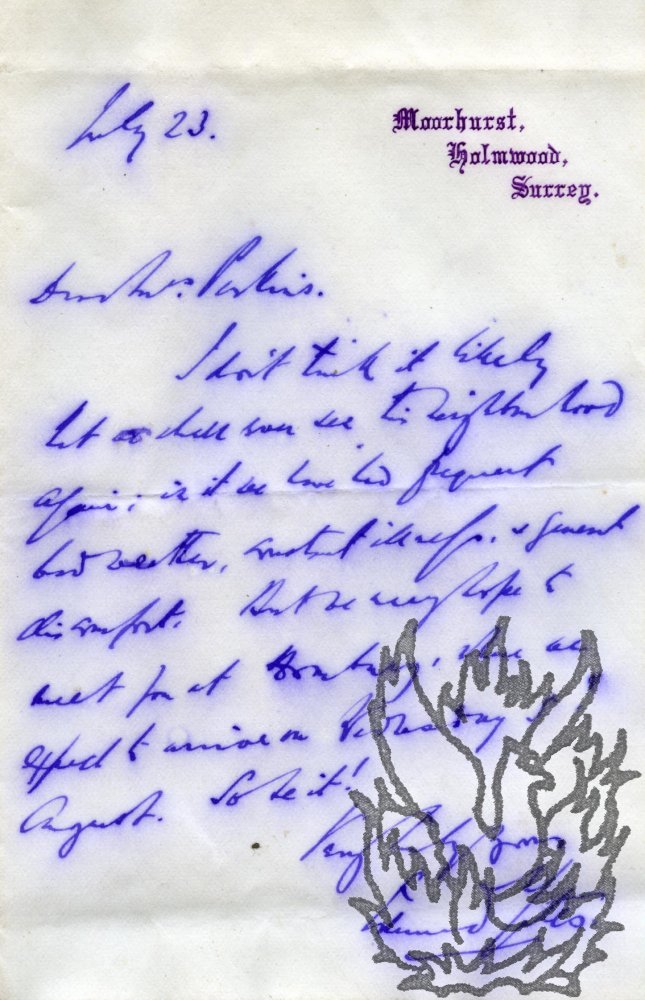 July 23.
Moorhurst,
Holmwood,
Surrey.
Dear Mrs. Perkins.
I don't think it likely
that we shall ever see this neighbourhood
again; in it we have had frequent
bad weather, constant illness, & general
discomfort. But we may hope to
meet you at Homburg, where we
expect to arrive on Wednesday
August. So be it!
Very truly yours